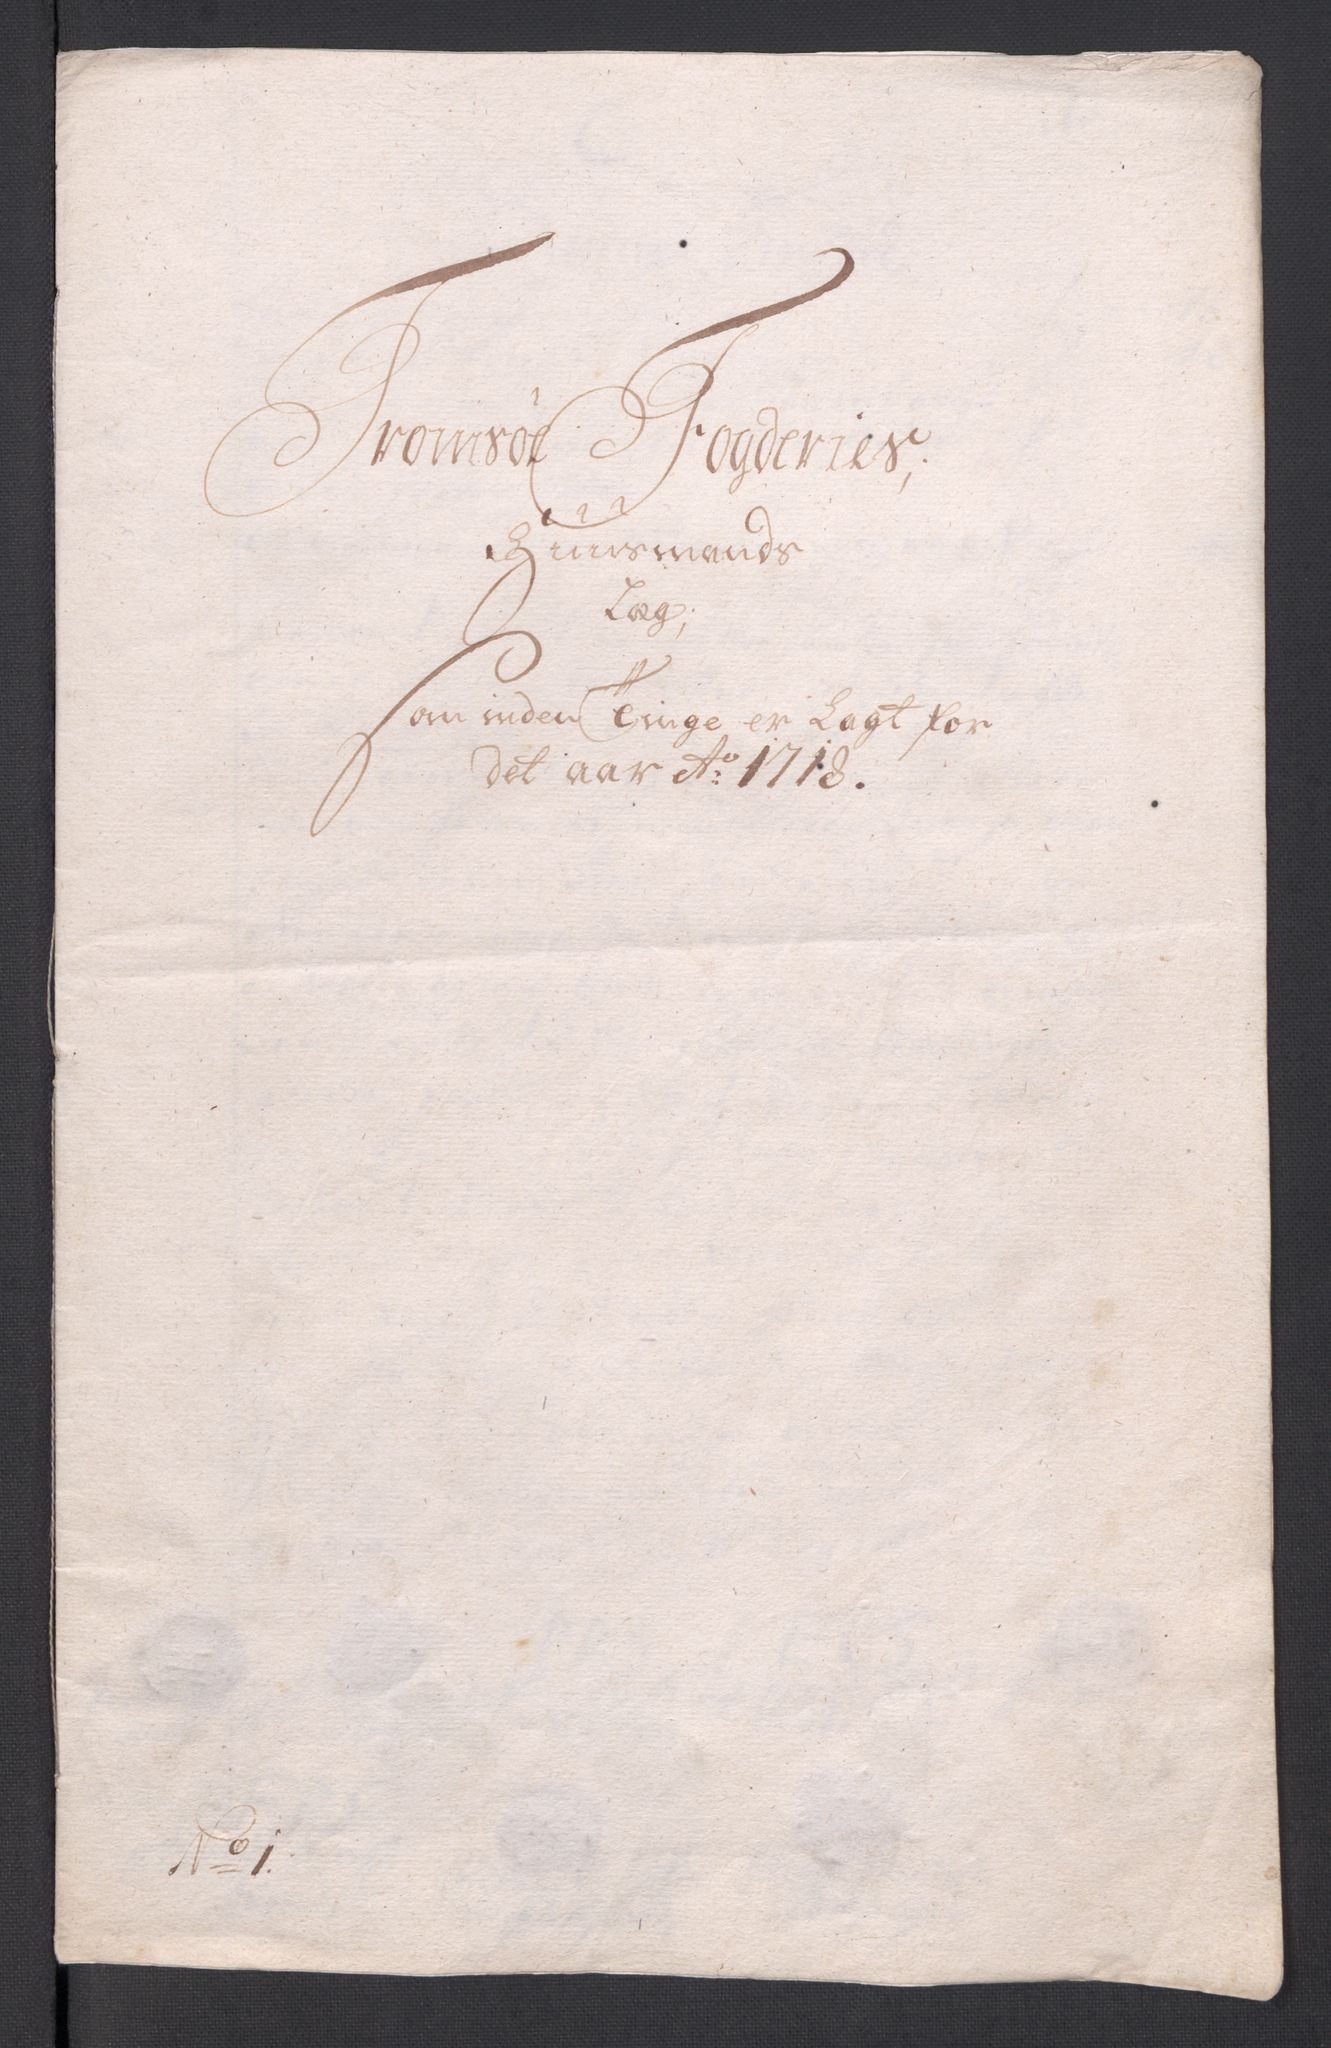 Tromsöe Fogderies;
Huusmands
Læg;
Som inden Tinge er Lagt for
det aar Ao: 1718.
No 1.